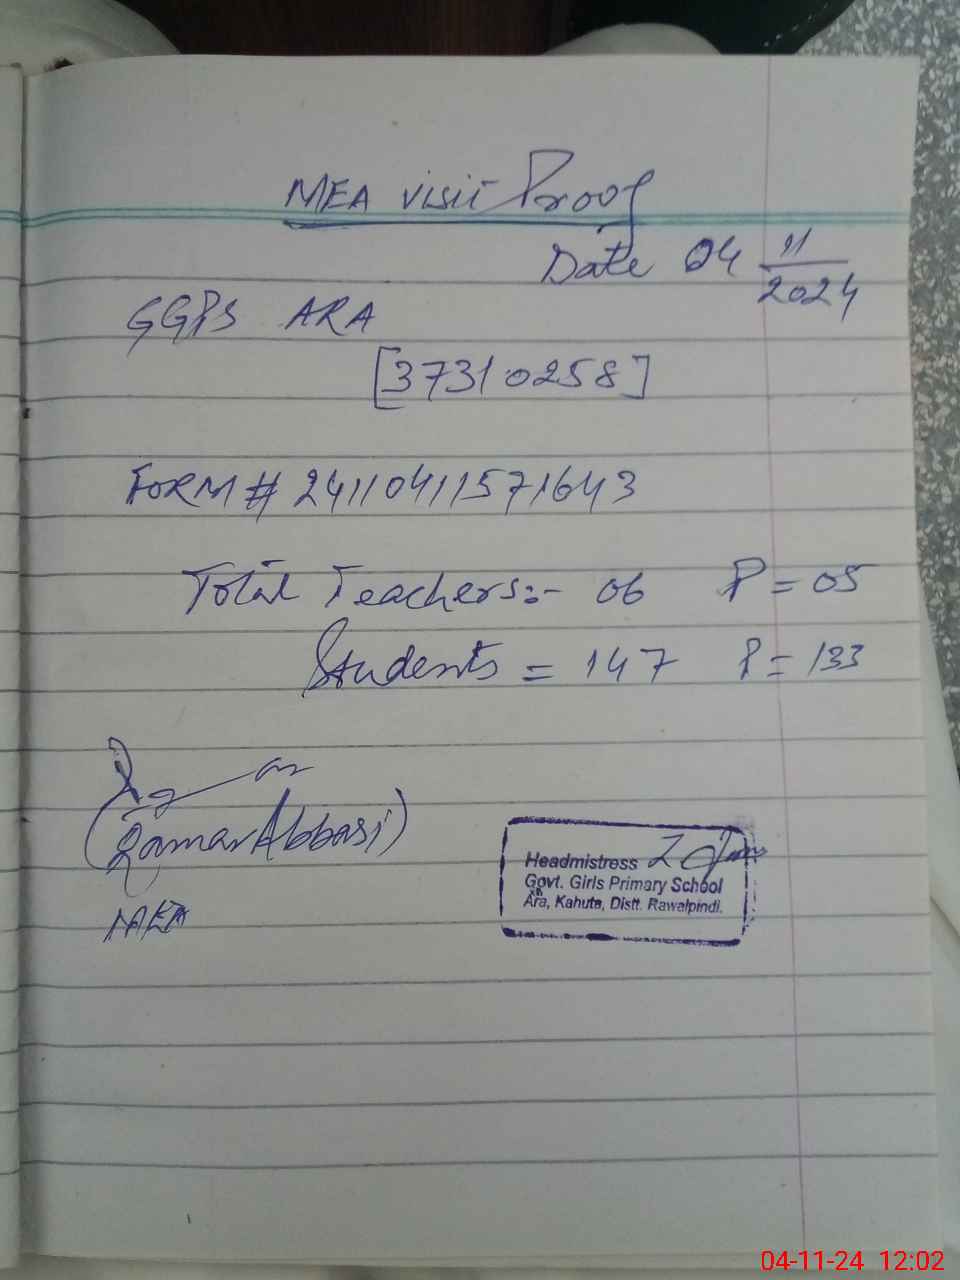 MEA visit Proof
Date 04 11/2024
GGPS ARA
[37310258]
FORM # 24110411571643
Total Teachers:- 06 P = 05
Students = 147 P = 133
(Qamar Abbasi)
MEA
Headmistress
Govt. Girls Primary School
Ara, Kahuta, Distt. Rawalpindi.
04-11-24 12:02